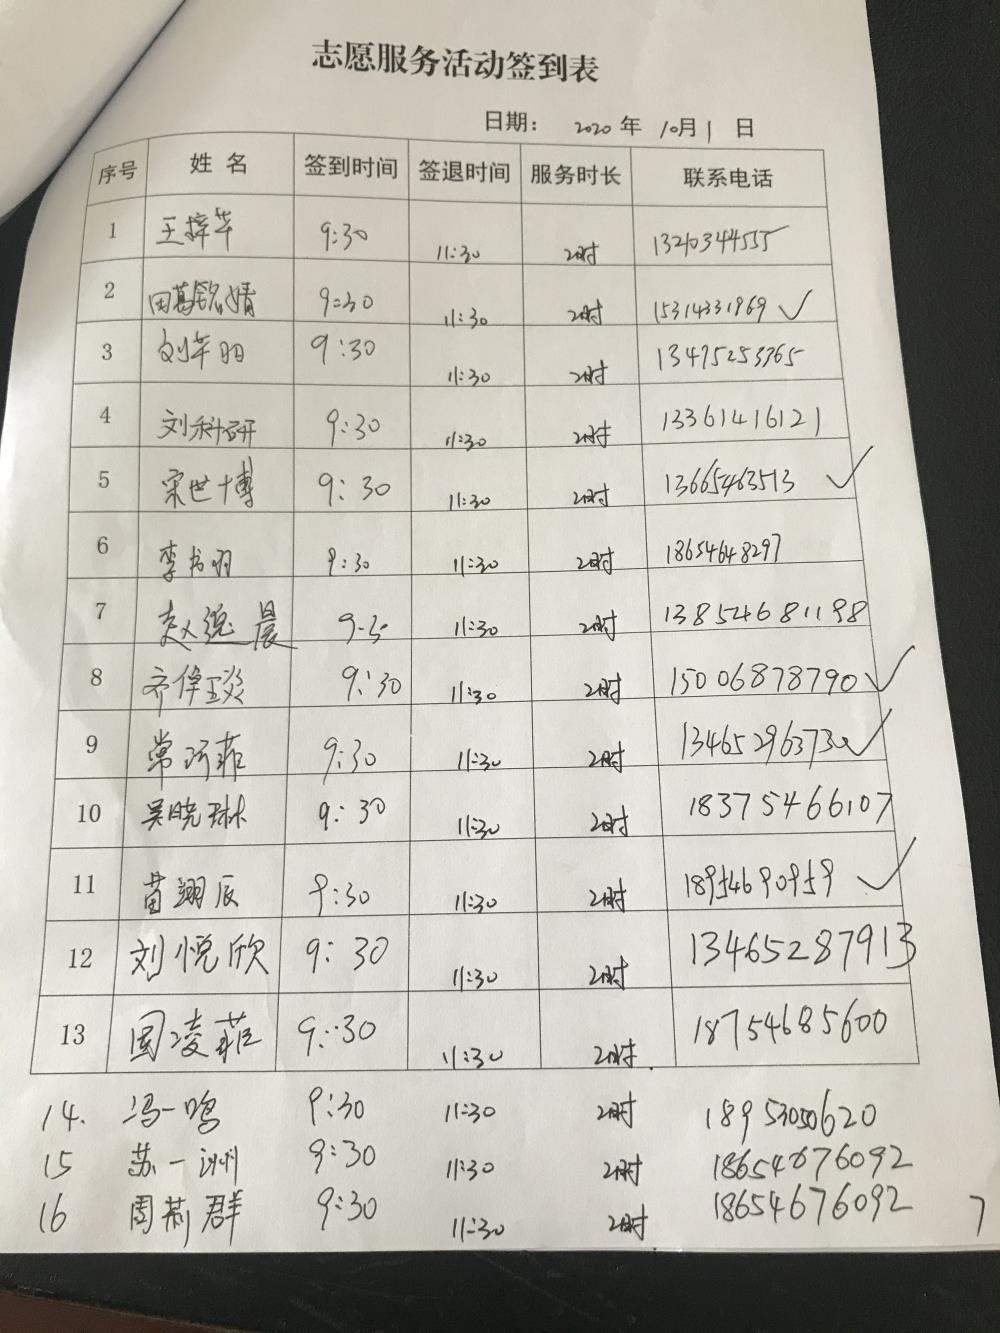 志愿服务活动签到表
日期: 2020年 10月1日
序号 姓名 签到时间 签退时间 服务时长 联系电话
1 王梓华 9:30 11:30 2小时
2 田葛铭婧 9:30 11:30 2小时 15314331969 ✓
3 刘芊羽 9:30 11:30 2小时 13475253765
4 刘科研 9:30 11:30 2小时 13361416121
5 宋世博 9:30 11:30 2小时 13665463513 ✓
6 李书羽 9:30 11:30 2小时 18654648297
7 赵晨 11:30 2小时 13854681198
8 齐偉琰 9:30 11:30 2小时 15006878790 ✓
9 常珂菲 9:30 11:30 2小时 ✓
10 吴晓琳 9:30 11:30 2小时 18375466107
11 苗翊辰 9:30 11:30 2小时 18954690959 ✓
12 刘悦欣 9:30 11:30 2小时 13465287913
13 国凌菲 9:30 11:30 2小时 18754685600
14. 冯一鸣 9:30 11:30 2小时 18953050620
15 苏一洲 9:30 11:30 2小时 18654676092
16 周荊群 9:30 11:30 2小时 18654676092
7